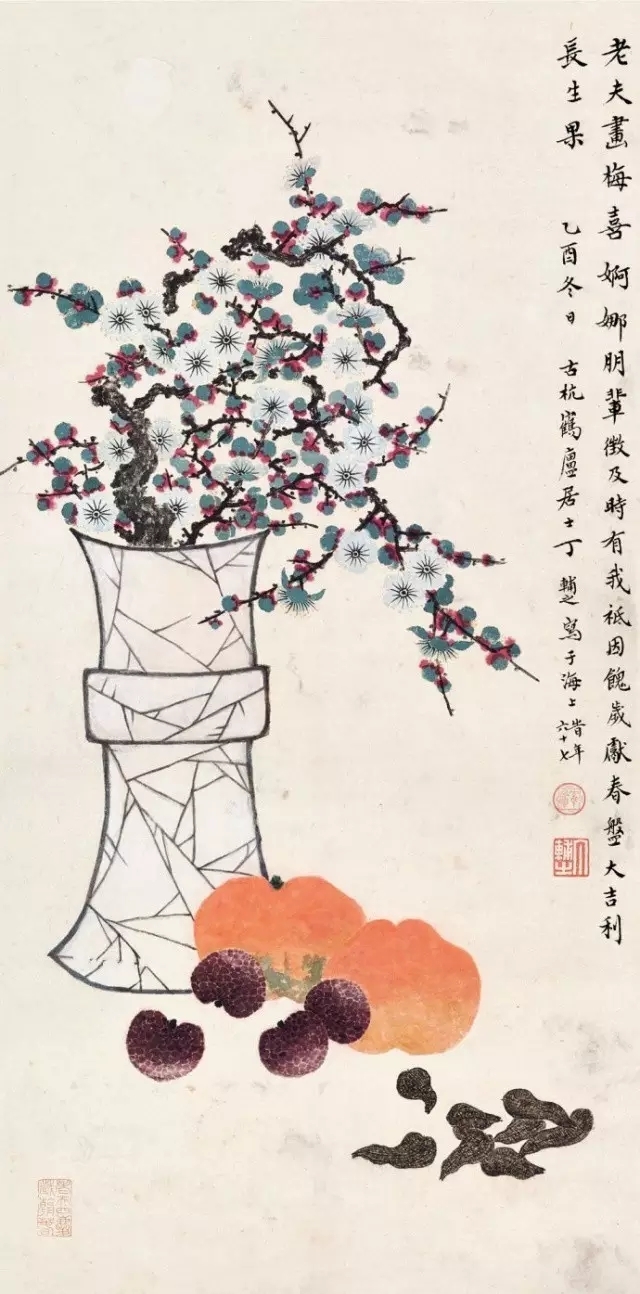 老夫畫梅喜婀娜朋輩徵及時有我祗因餽歲獻春盤大吉利
長生果　乙酉冬日　古杭鶴廬居士丁輔之寫于海上時年六十七